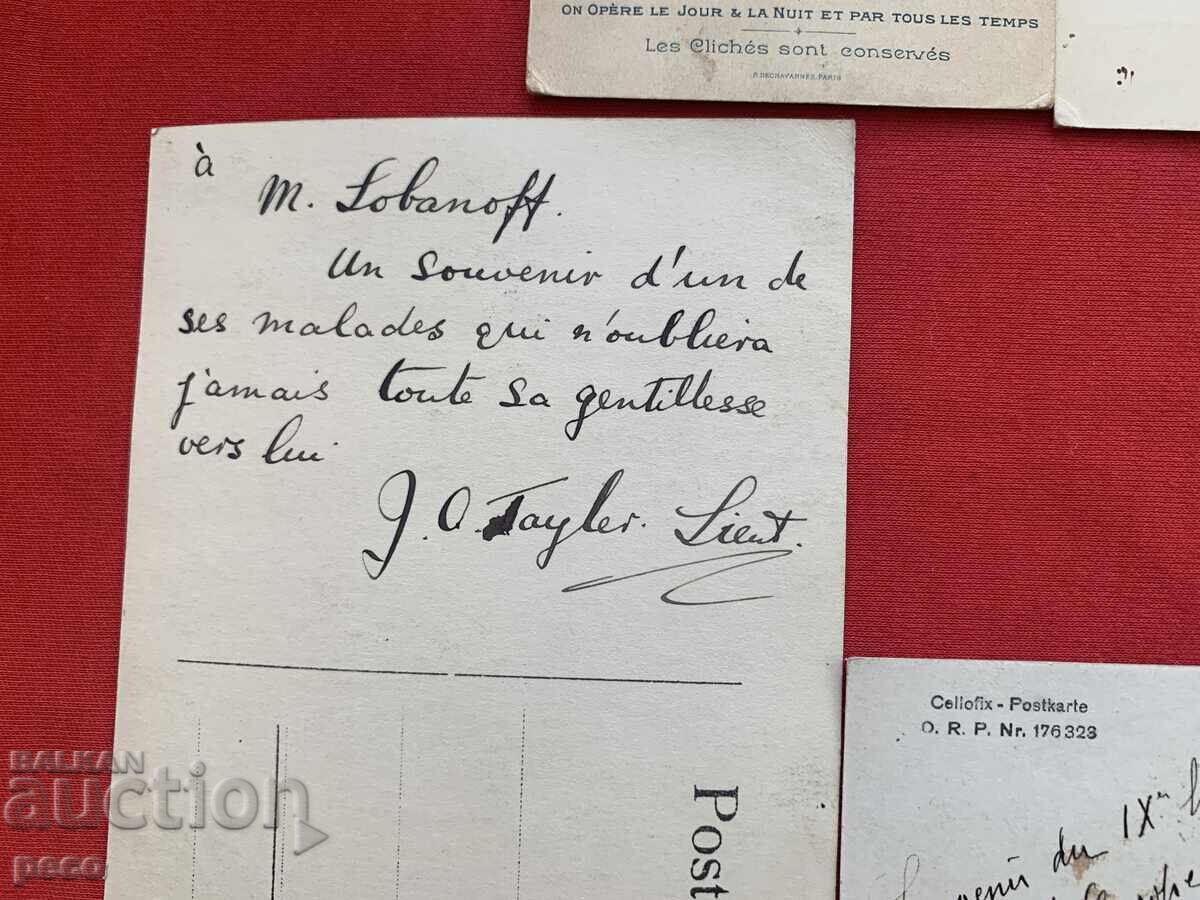 ON OPÈRE LE JOUR & LA NUIT ET PAR TOUS LES TEMPS
Les Clichés sont conservés
P. DECHAVANNES, PARIS
à
M. Lobanoff.
Un souvenir d'un de
ses malades qui n'oubliera
jamais toute sa gentillesse
vers lui
J. O. Tayler. Lieut.
Post
Cellofix - Postkarte
O. R. P. Nr. 176323
du IXme
BALKAN
auction
peco